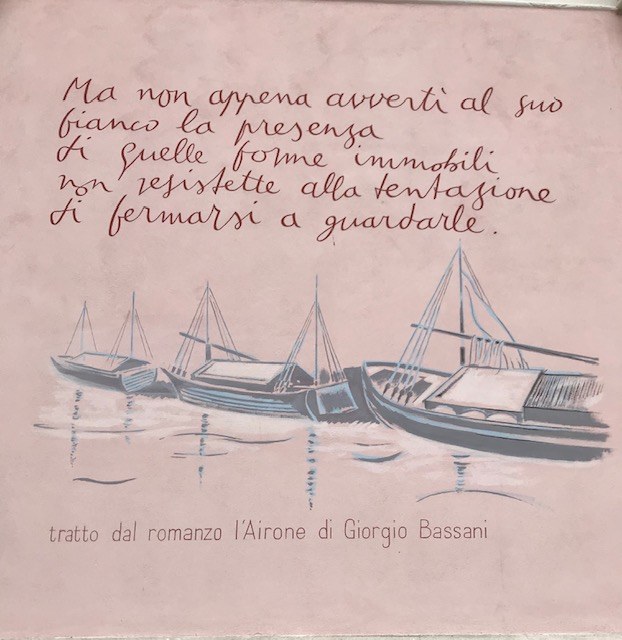 Ma non appena avvertì al suo
fianco la presenza
di quelle forme immobili
non resistette alla tentazione
di fermarsi a guardarle.
tratto dal romanzo l'Airone di Giorgio Bassani